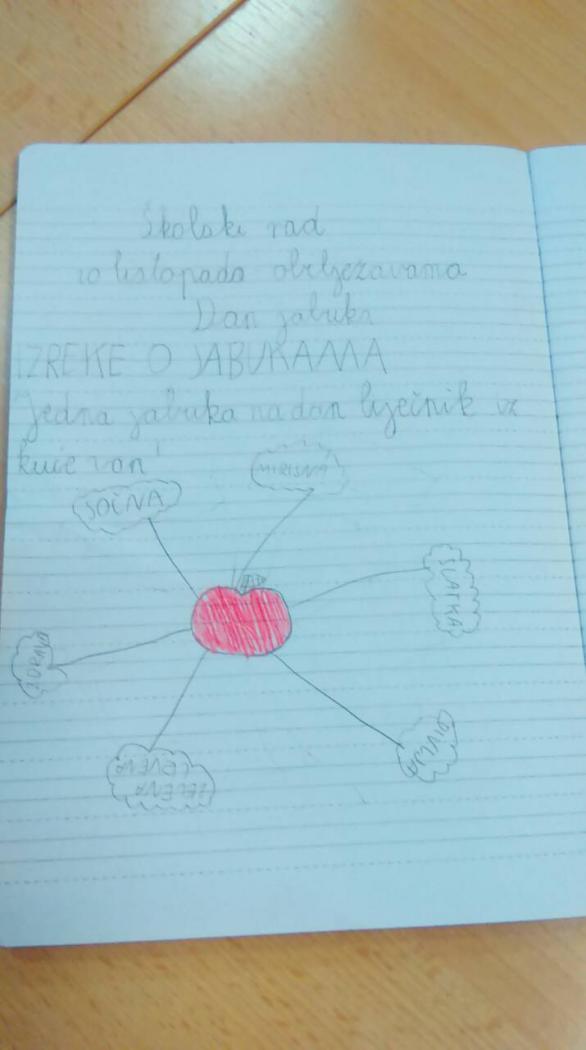 Školski rad
20 listopada obilježavama
Dan jabuka
IZREKE O JABUKAMA
"Jedna jabuka na dan liječnik iz
kuće van"
MIRISNA
SOČNA
SLATKA
ZDRAVA
DIVLJA
ZELENA
CRVENA